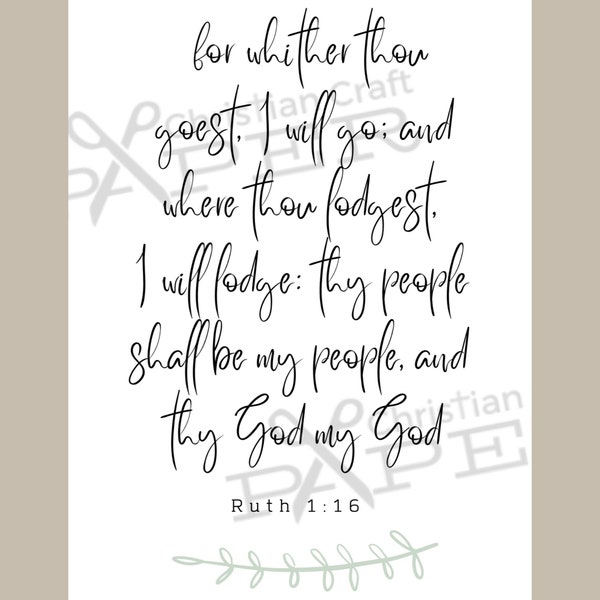 for whither thou
Christian Craft
goest, I will go; and
PAPER
where thou lodgest,
I will lodge: thy people
shall be my people, and
Christian
thy God my God
PAPE
Ruth 1:16